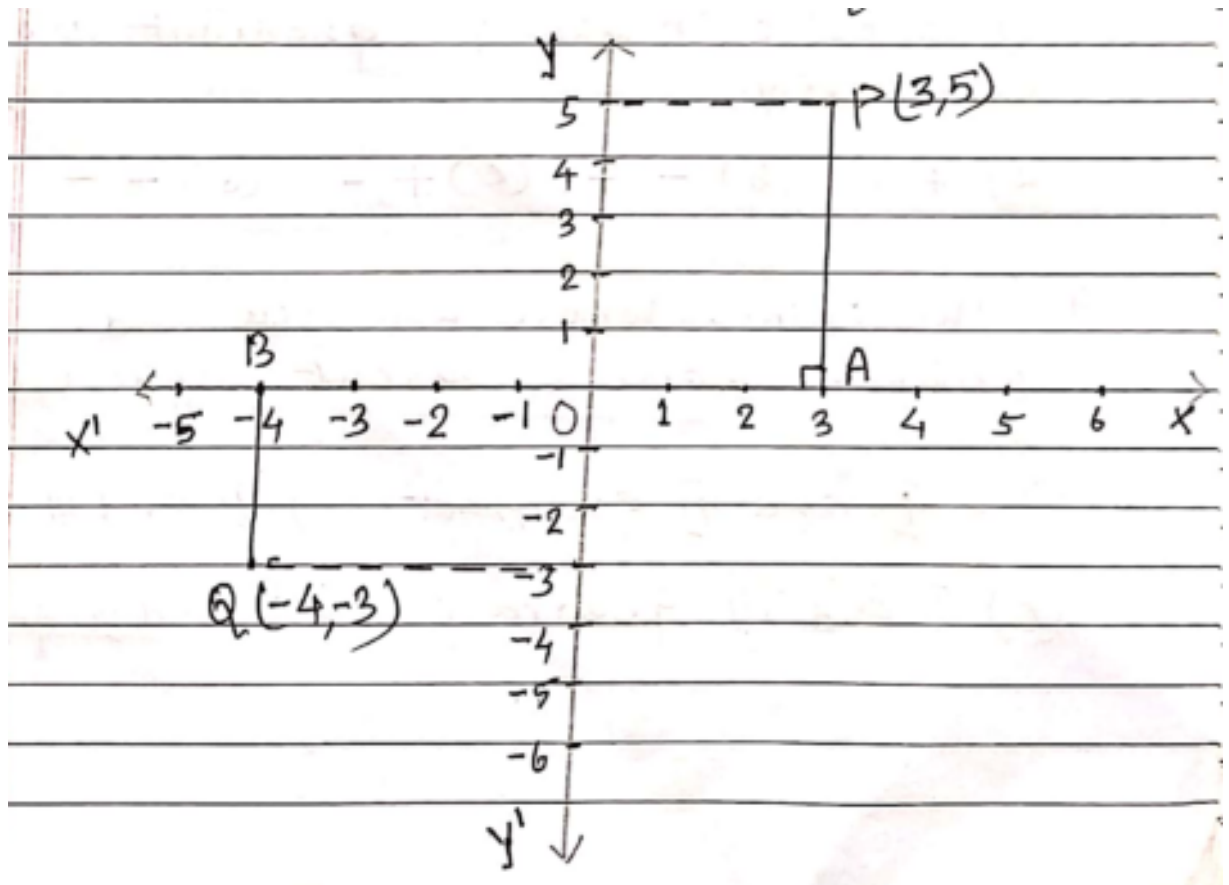 y
5
P(3,5)
4
3
2
1
B
A
X' -5 -4 -3 -2 -1 0 1 2 3 4 5 6 X
-1
-2
-3
Q(-4,-3)
-4
-5
-6
y'